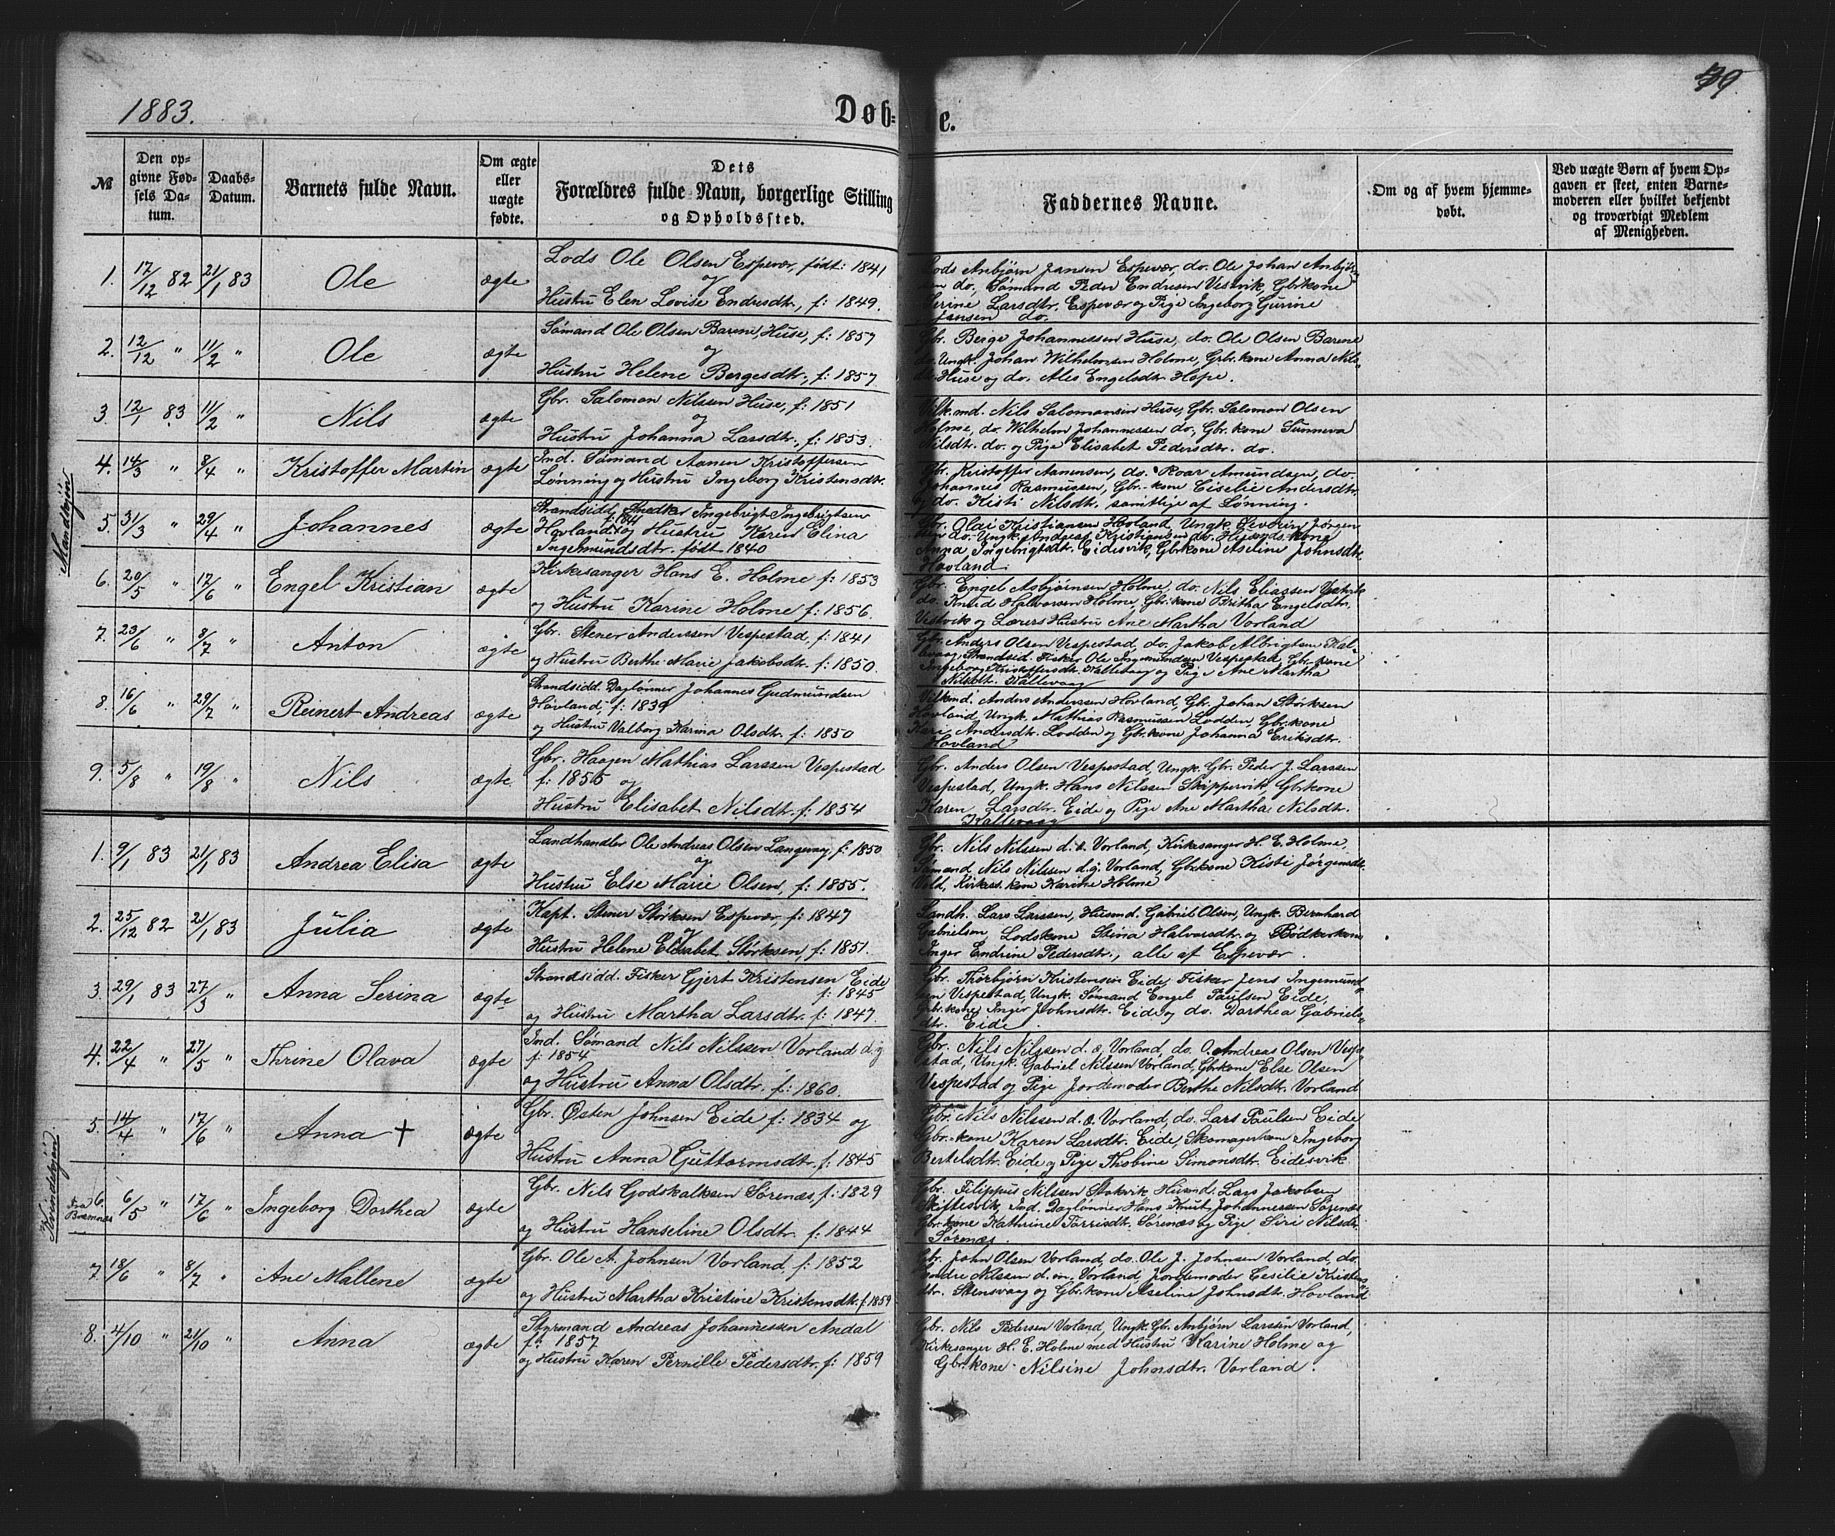 1883.
Døb= e.
79.
№
Den op=
givne Fød=
sels Da=
tum.
Daabs=
Datum.
Barnets fulde Navn.
Om ægte
eller
uægte
fødte.
Dets
Forældres fulde Navn, borgerlige Stilling
og Opholdssted.
Faddernes Navne.
Om og af hvem hjemme=
døbt.
Ved uægte Børn af hvem Op=
gaven er skeet, enten Barne=
moderen eller hvilket bekjendt
og troværdigt Medlem
af Menigheden.
Mandkjøn
1. 17/12 82 21/1 83 Ole ægte
Lods Ole Olsen Espevær, født: 1841
og
Hustru Elen Lovise Endresdtr., f: 1849.
Lods Anbjørn Jansen Espevær, do. Ole Johan Anbjør-
sen do., Sømand Peder Endresen Vesvik, Gbr.kone
Serine Larsdtr. Espevær og Pige Ingeborg Gurine
Jansen do.
2. 12/12 " 11/2 " Ole ægte
Sømand Ole Olsen Barene, Huse, f: 1857
og
Hustru Helene Bergesdtr., f: 1857
Gbr. Berge Johannessen Huse, do. Ole Olsen Barene
do. Ungk. Johan Wilhelmsen Holme, Gbr.kone Anna Nils-
dtr. Huse og do. Ales Engelsdtr. Hope.
3. 12/1 83. 11/2 " Nils ægte
Gbr. Salomon Nilsen Huse, f: 1851
og
Hustru Johanna Larsdtr., f: 1853.
Vilk.md. Nils Salomonsen Huse, Gbr. Salomon Olsen
Holme, do. Wilhelm Johannessen do., Gbr.kone Sunneva
Nilsdtr. do. og Pige Elisabet Pedersdtr. do.
4. 14/3 " 8/4 " Kristoffer Martin ægte
Ind. Sømand Aanen Kristoffersen
Lønning og Hustru Ingeborg Kristensdtr.
Gbr. Kristoffer Aanensen, do. Roar Amundsen, do.
Johannes Rasmussen, Gbr.kone Ciselie Andersdtr.
og do. Kisti Nilsdt. samtlige af Lønning.
5. 31/3 " 29/4 " Johannes ægte
Strandsidd. Snedker Ingebrigt Ingebrigtsen
Hovland, og Hustru Karen Elina
Ingemundsdtr. født 1840
Gbr. Olai Kristiansen Hovland, Ungk. Severin Jørgen-
sen do. Ungk. Andreas Kristiansen do. Husmds. kone
Anna Ingebrigtsdt. Eidesvik, Gbr.kone Aseline Johnsdt.
Hovland.
6. 20/5 " 17/6 " Engel Kristian ægte
Kirkesanger Hans E. Holme f: 1853
og Hustru Karine Holme f: 1856.
Gbr. Engel Asbjørnsen Holme, do. Nils Eliassen
do. Knud Halvorsen Holme, Gbr.kone Britha Engelsdtr.
Vestvik og Lærers Hustru Ane Martha Vorland
7. 23/6 " 8/7 " Anton ægte
Gbr. Stener Anderssen Vespestad, f: 1841
og Hustru Berthe Marie Jakobsdtr. f: 1850.
Gbr. Anders Olsen Vespestad, do. Jakob Albrigtsen Kal-
levaag, Strandsid. Fisker Ole Ingemundsen Vespestad, Gbr.kone
Ingeborg Kristoffersdt. Kallevaag og Pige Ane Martha
Nilsdt. Kallevaag
8. 16/6 " 29/7 " Reinert Andreas ægte
Strandsidd. Daglønner Johannes Gudmundsen
Hovland, f: 1839
og Hustru Valborg Karina Olsdt. f: 1850
Vilkmd. Anders Anderssen Hovland, Gbr. Johan Størksen
Hovland, Ungk. Mathias Rasmussen Lodden, Gbr.kone
Kari Andersdt. Lodden og Gbr.kone Johanna Eriksdtr.
Hovland
9. 5/8 " 19/8 " Nils ægte
Gbr. Haagen Mathias Larssen Vespestad
f: 1855 og
Hustru Elisabet Nilsdt. f: 1854
Gbr. Anders Olsen Vespestad, Ungk. Gbr. Peder J. Larssen
Vespestad, Ungk. Hans Nilssen Skippervik, Gbr.kone
Karen Larsdtr. Eide og Pige Ane Martha Nilsdt.
Kallevaag
Kvindekjøn
1. 9/1 83 21/1 83 Andrea Elisa ægte
Landhandler Ole Andreas Olsen Langevaag, f: 1850
og
Hustru Else Marie Olsen, f: 1855.
Gbr. Nils Nilssen d. æ. Vorland, Kirkesanger H. E. Holme,
Sømand Nils Nilssen d. y. Vorland, Gbr.kone Kisti Jørgensdt.
Vold, Kirkes. kone Karine Holme
2. 25/12 82 21/1 83 Julia ægte
Kapt. Stener Størksen Espevær, f: 1847
og
Hustru Helene Elisabet Størksen, f: 1851.
Landh. Lars Larssen, Husmd. Gabriel Olsen, Ungk. Bernhard
Gabrielsen, Lodskone Stina Halvorsdtr. og Bødkerkone
Inger Endrine Pedersdtr., alle af Espevær.
3. 29/1 83 27/3 " Anna Serina ægte
Strandsidd. Fisker Gjert Kristensen Eide
f: 1845
og Hustru Martha Larsdtr. f: 1847.
Gbr. Thorbjørn Kristensen Eide, Fisker Jens Ingemund-
sen Vespestad, Ungk. Sømand Engel Paulsen Eide,
Gbr.kone Inger Johnsdtr. Eide og do. Dorthea Gabriels-
dtr. Eide.
4. 22/4 " 27/5 " Thrine Olava ægte
Ind. Sømand Nils Nilssen Vorland d. y
f: 1854
og Hustru Anna Olsdtr. f: 1860.
Gbr. Nils Nilssen d. æ. Vorland, do. O. Andreas Olsen Vespe-
stad, Ungk. Gabriel Nilssen Vorland, Gbr.kone Else Olsen
Vespestad og Pige Jordemoder Berthe Nilsdt. Vorland
5. 14/4 " 17/6 " Anna † ægte
Gbr. Østen Johnsen Eide f: 1834 og
Hustru Anna Guttormsdt. f: 1845
Gbr. Nils Nilssen d. æ. Vorland, do. Lars Paulsen Eide
Gbr.kone Karen Larsdtr. Eide, Skomagerkone Ingeborg
Bertelsdtr. Eide og Pige Thobine Simonsdt. Eidesvik
Fra Bremnæs
6. 6/5 " 17/6 " Ingeborg Dorthea ægte
Gbr. Nils Godskalksen Sørenæs, f: 1829
og Hustru Hanseline Olsdtr. f: 1844
Gbr. Filippus Nilssen Stokvik, Husmd. Lars Jakobsen
Skiftesvik, Ind. Daglønner Hans Knut Johannessen Sørenæs
Gbr.kone Kathrine Tørrisdt. Sørenæs og Pige Siri Nilsdt.
Sørenæs.
7. 18/6 " 8/7 " Ane Mallene ægte
Gbr. Ole A. Johnsen Vorland, f: 1852
og Hustru Martha Kristine Kristensdtr. f. 1859
Gbr. John Olsen Vorland, do. Ole J. Johnsen Vorland, do.
Endre Nilssen d. m. Vorland, Jordemoder Cesilie Kristens-
dtr. Stensvaag og Gbr.kone Aseline Johnsdt. Hovland
8. 4/10 " 21/10 " Anna ægte
Styrmand Andreas Johannessen Andal
f: 1857
og Hustru Karen Pernille Pedersdtr. f: 1859
Gbr. Nils Pedersen Vorland, Ungk. Gbr. Anbjørn Larssen Vorland,
Kirkesanger H. E. Holme med Hustru Karine Holme og
Gbr.kone Nilsine Johnsdtr. Vorland.